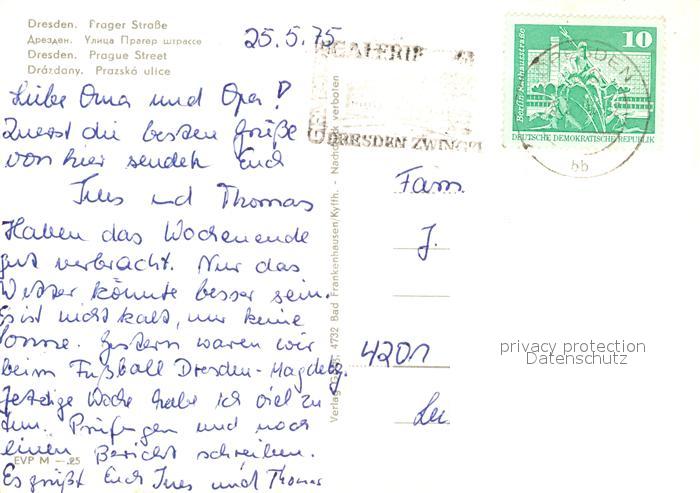 Dresden. Prager Straße
Дрезден. Улица Прагер штрассе
Dresden. Prague Street
Drázdany. Prazská ulice
25.5.75
GALERIE
DRESDEN ZWINGER
Berlin, Rathausstraße
10
DEUTSCHE DEMOKRATISCHE REPUBLIK
DRESDEN
bb
Liebe Oma und Opa!
Zuerst die besten Grüße
von hier senden Euch
Ines und Thomas
Haben das Wochenende
gut verbracht. Nur das
Wetter könnte besser sein.
Es ist nicht kalt, nur keine
Sonne. Gestern waren wir
beim Fußball Dresden-Magdebg.
Jetzige Woche habe ich viel zu
tun. Prüfungen und noch
einen Bericht schreiben.
Es grüßt Euch Ines und Thomas
EVP M -.25
Verlag 4732 Bad Frankenhausen/Kyffh. - Nachdruck verboten
Fam.
J.
4201
privacy protection
Datenschutz